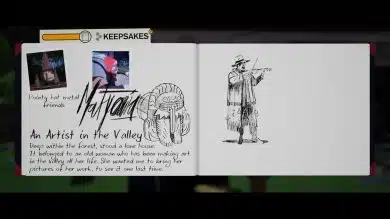 KEEPSAKES
Pointy hat metal
friends
An Artist in the Valley
Deep within the forest, stood a lone house.
It belonged to an old woman who has been making art
in the Valley all her life. She wanted me to bring her
pictures of her work, to see it one last time.